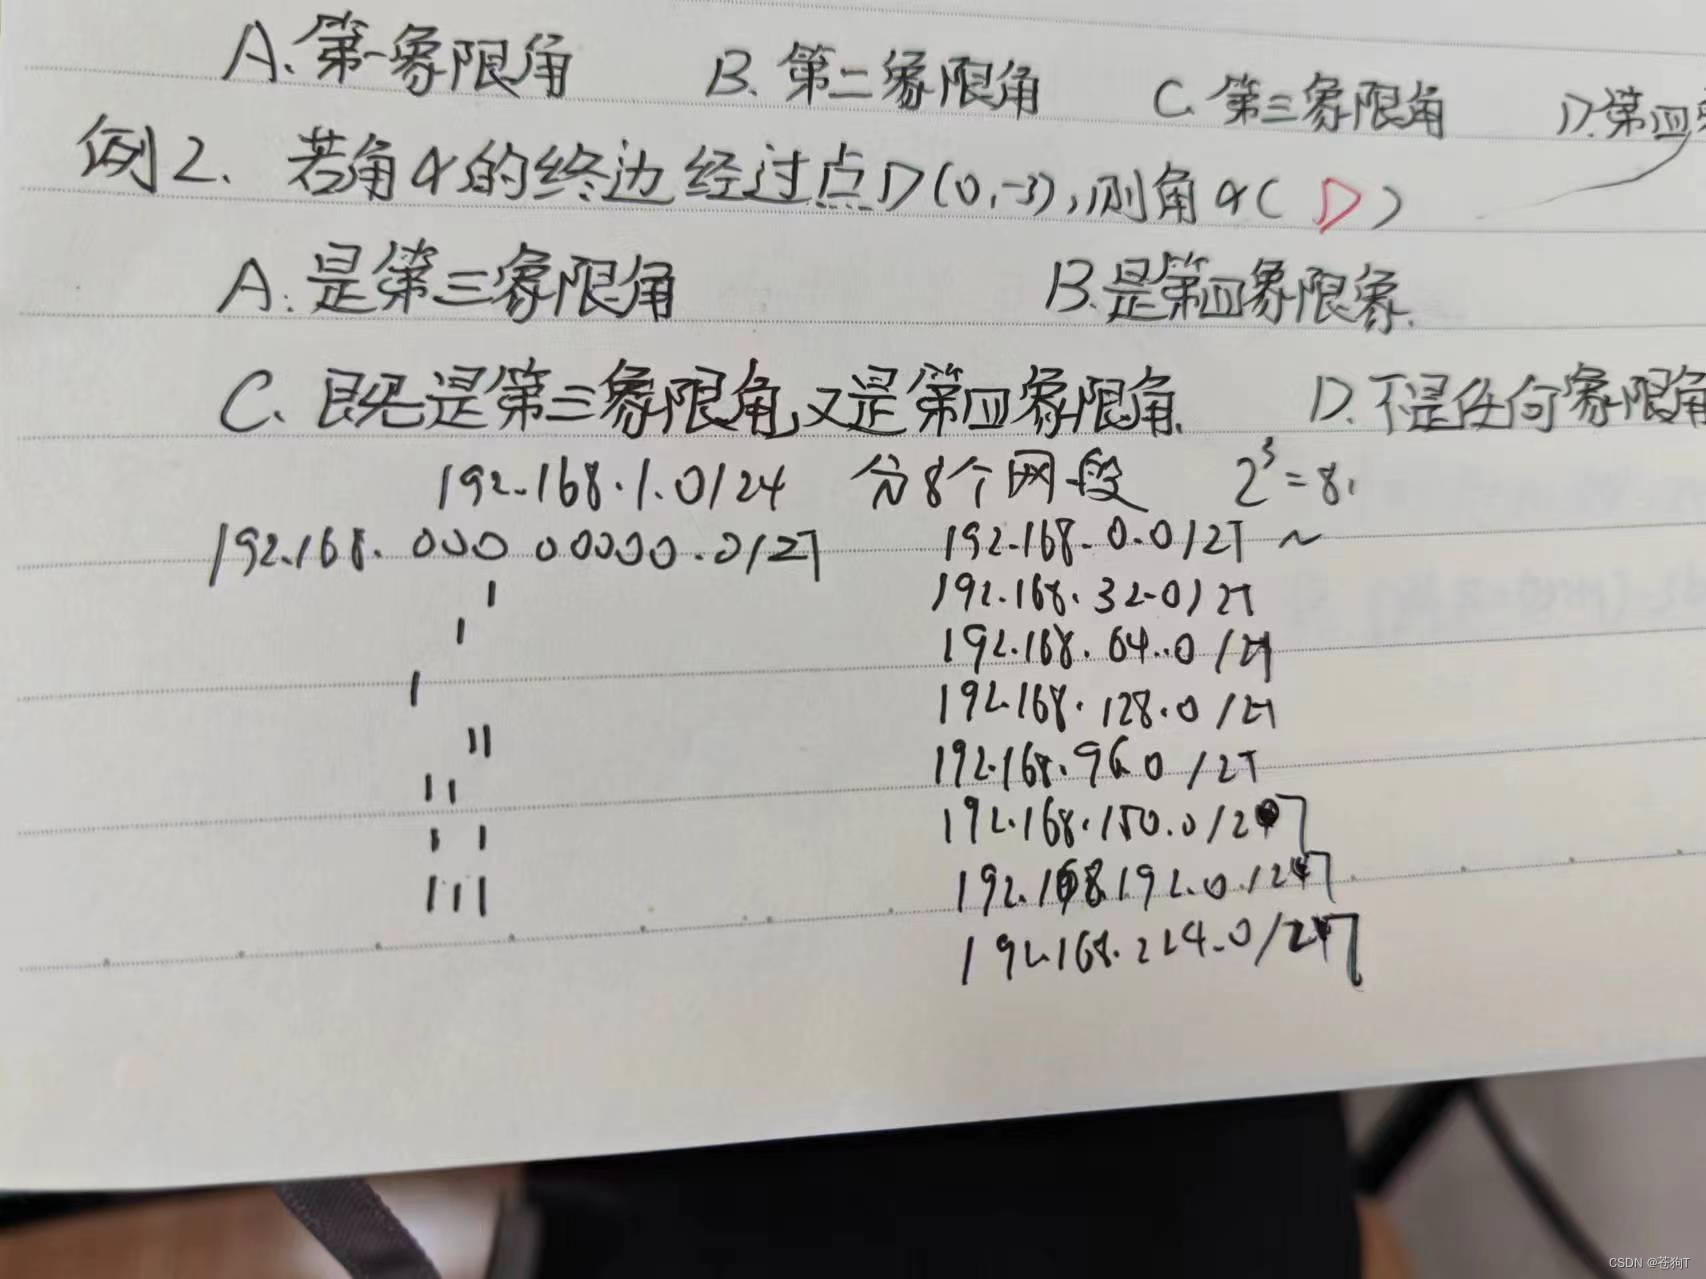 A.第一象限角 B.第二象限角 C.第三象限角 D.第四
例2.若角α的终边经过点D(0,-3),则角α( D )
A.是第三象限角 B.是第四象限象.
C.既是第三象限角,又是第四象限角. D.不是任何象限角
192.168.1.0/24 分8个网段 2³=8.
192.168.000 00000.0/27 192.168.0.0/27 ~
1 192.168.32.0/27
1 192.168.64.0/27
1 192.168.128.0/27
11 192.168.96.0/27
11 192.168.150.0/27
1 1 192.168.192.0/27
111 192.168.224.0/27
CSDN @苍狗T